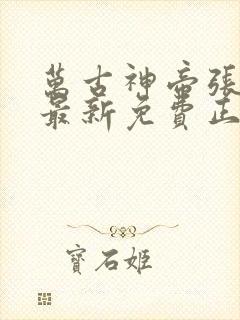 萬古神帝張
最新免費正
寶石姬